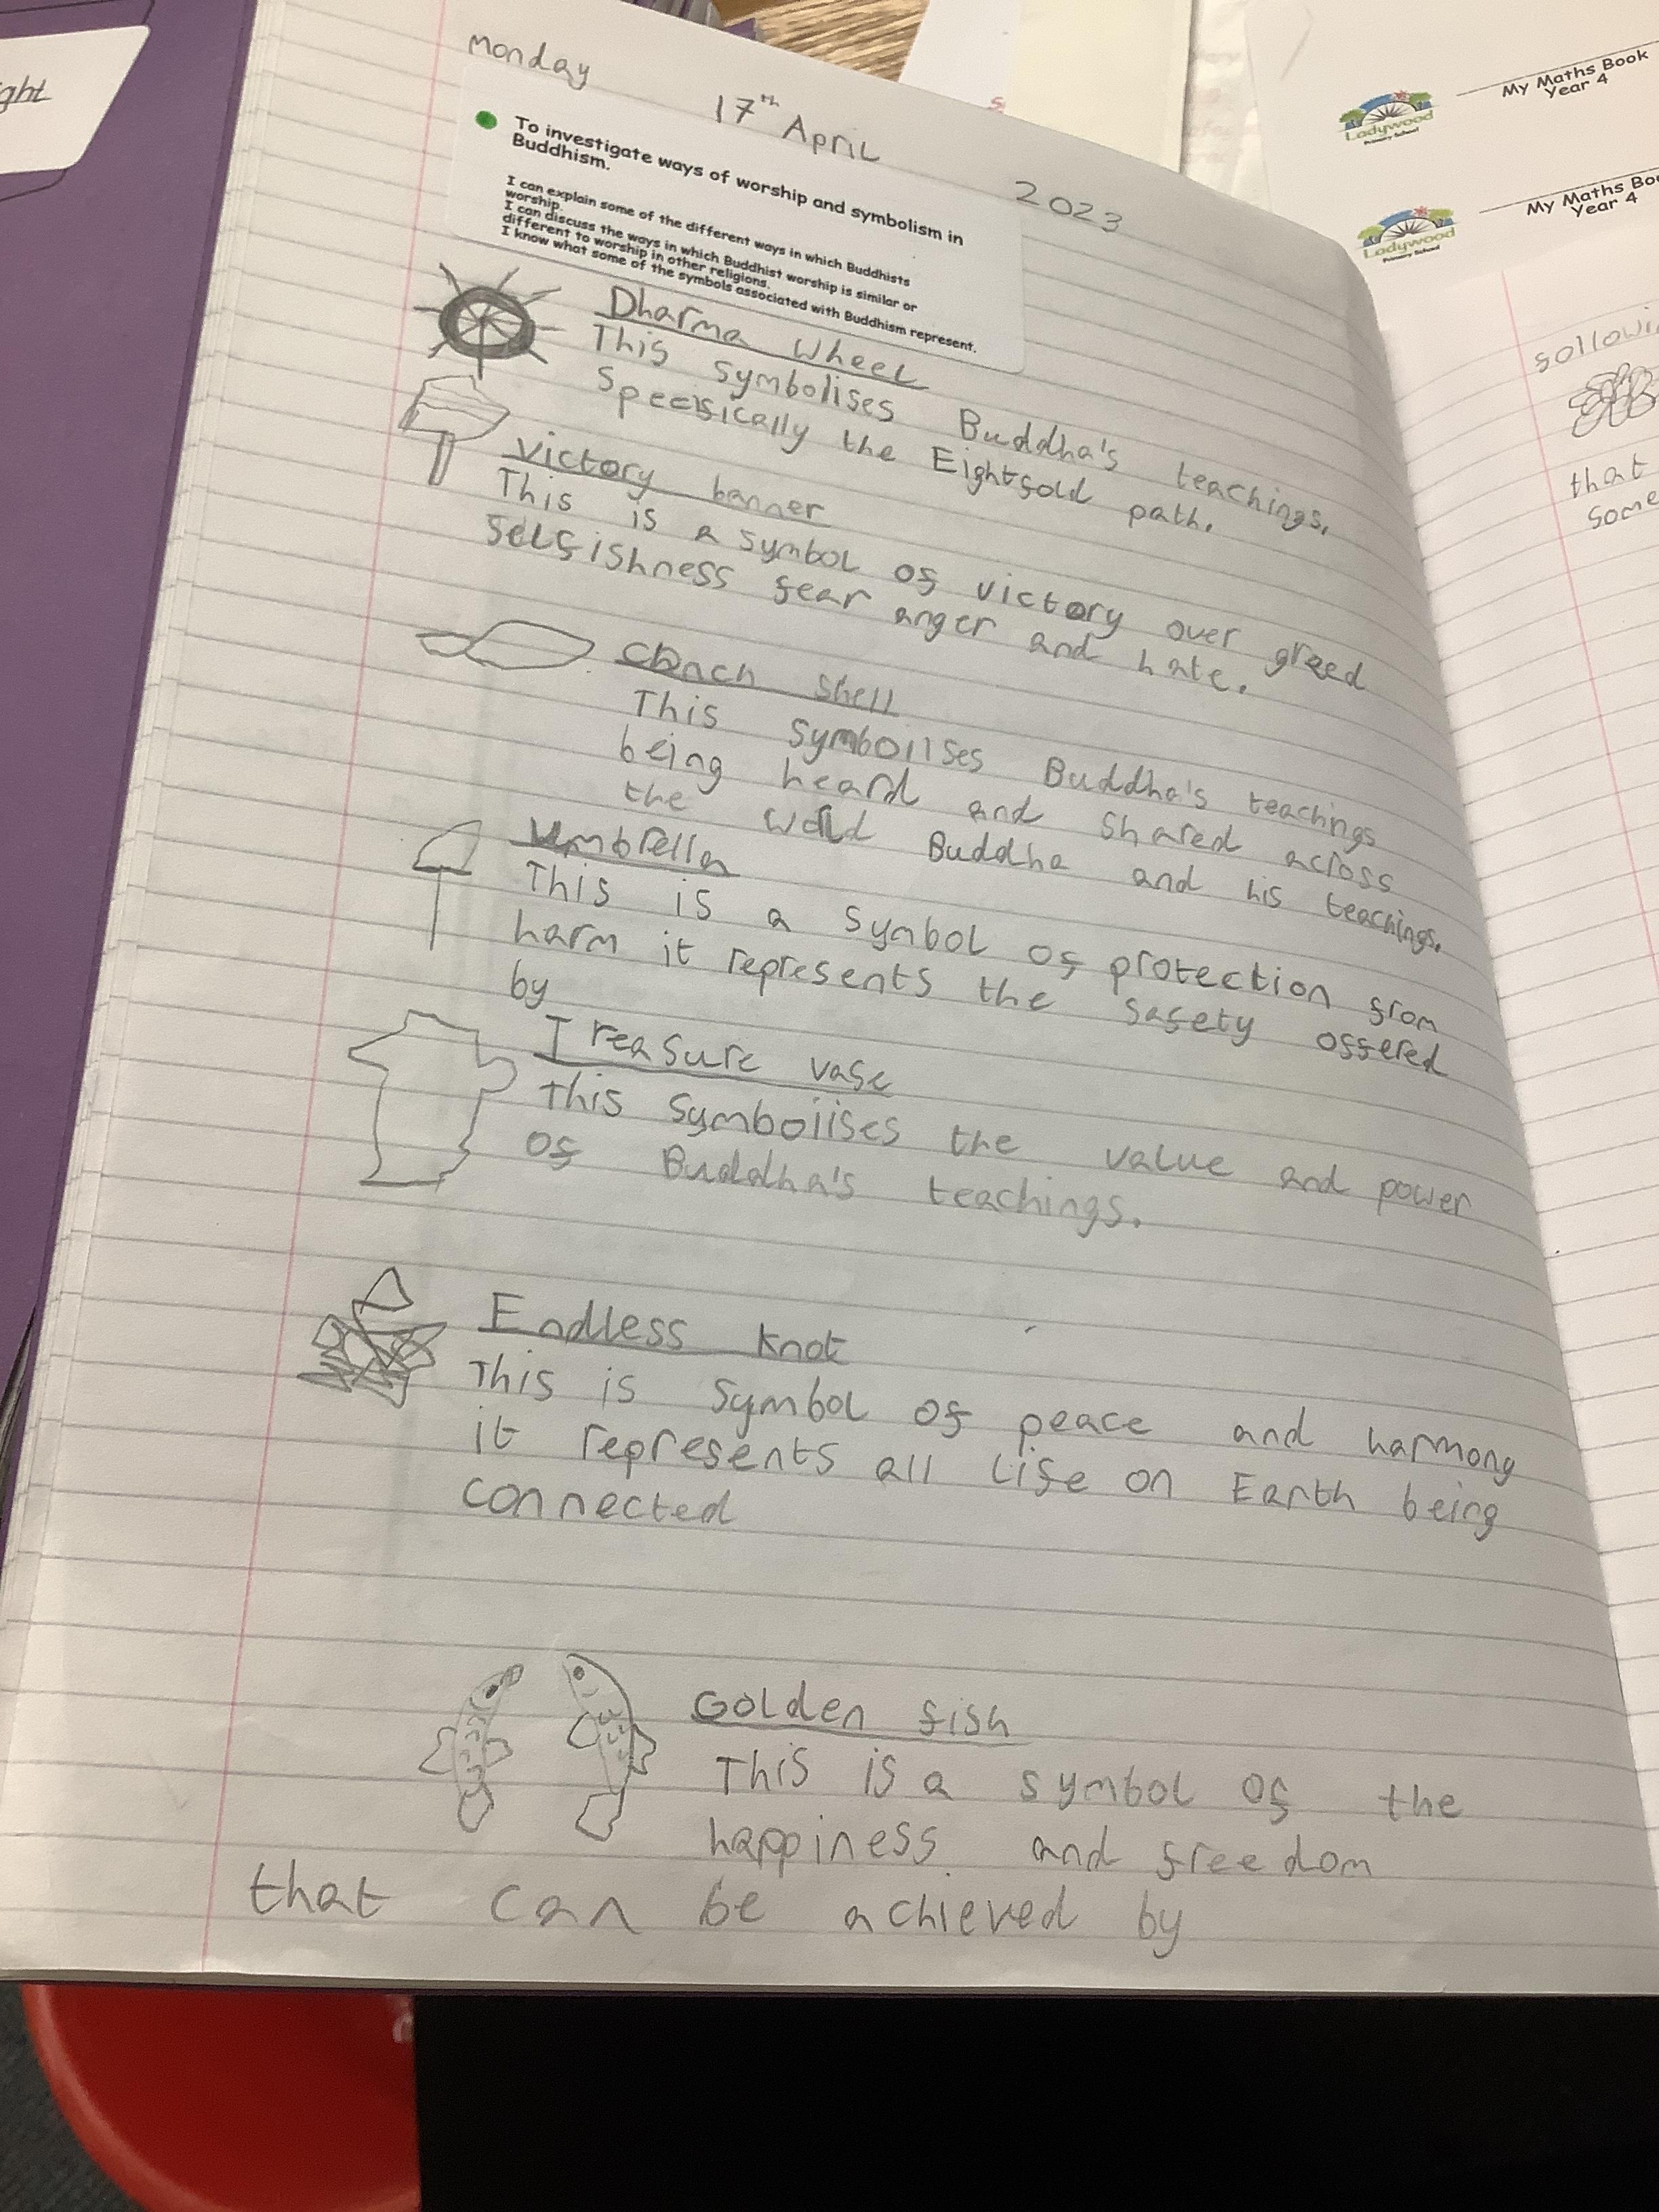 ght
monday 17th April 2023
To investigate ways of worship and symbolism in
Buddhism.
I can explain some of the different ways in which Buddhists
worship.
I can discuss the ways in which Buddhist worship is similar or
different to worship in other religions.
I know what some of the symbols associated with Buddhism represent.
Dharma wheel
This symbolises Buddha's teachings,
specisically the Eightfold path.
victory banner
This is a symbol of victory over greed
selfishness fear anger and hate.
Conch shell
This symbolises Buddha's teachings
being heard and shared across
the world Buddha and his teachings.
Umbrella
This is a symbol of protection from
harm it represents the safety offered
by
Treasure vase
This symboiises the value and power
of Buddha's teachings.
Endless knot
This is symbol of peace and harmony
it represents all life on Earth being
connected
Golden fish
This is a symbol of the
happiness and freedom
that can be achieved by
My Maths Book
Year 4
Ladywood
Primary School
My Maths Boo
Year 4
Ladywood
Primary School
followi
that
some